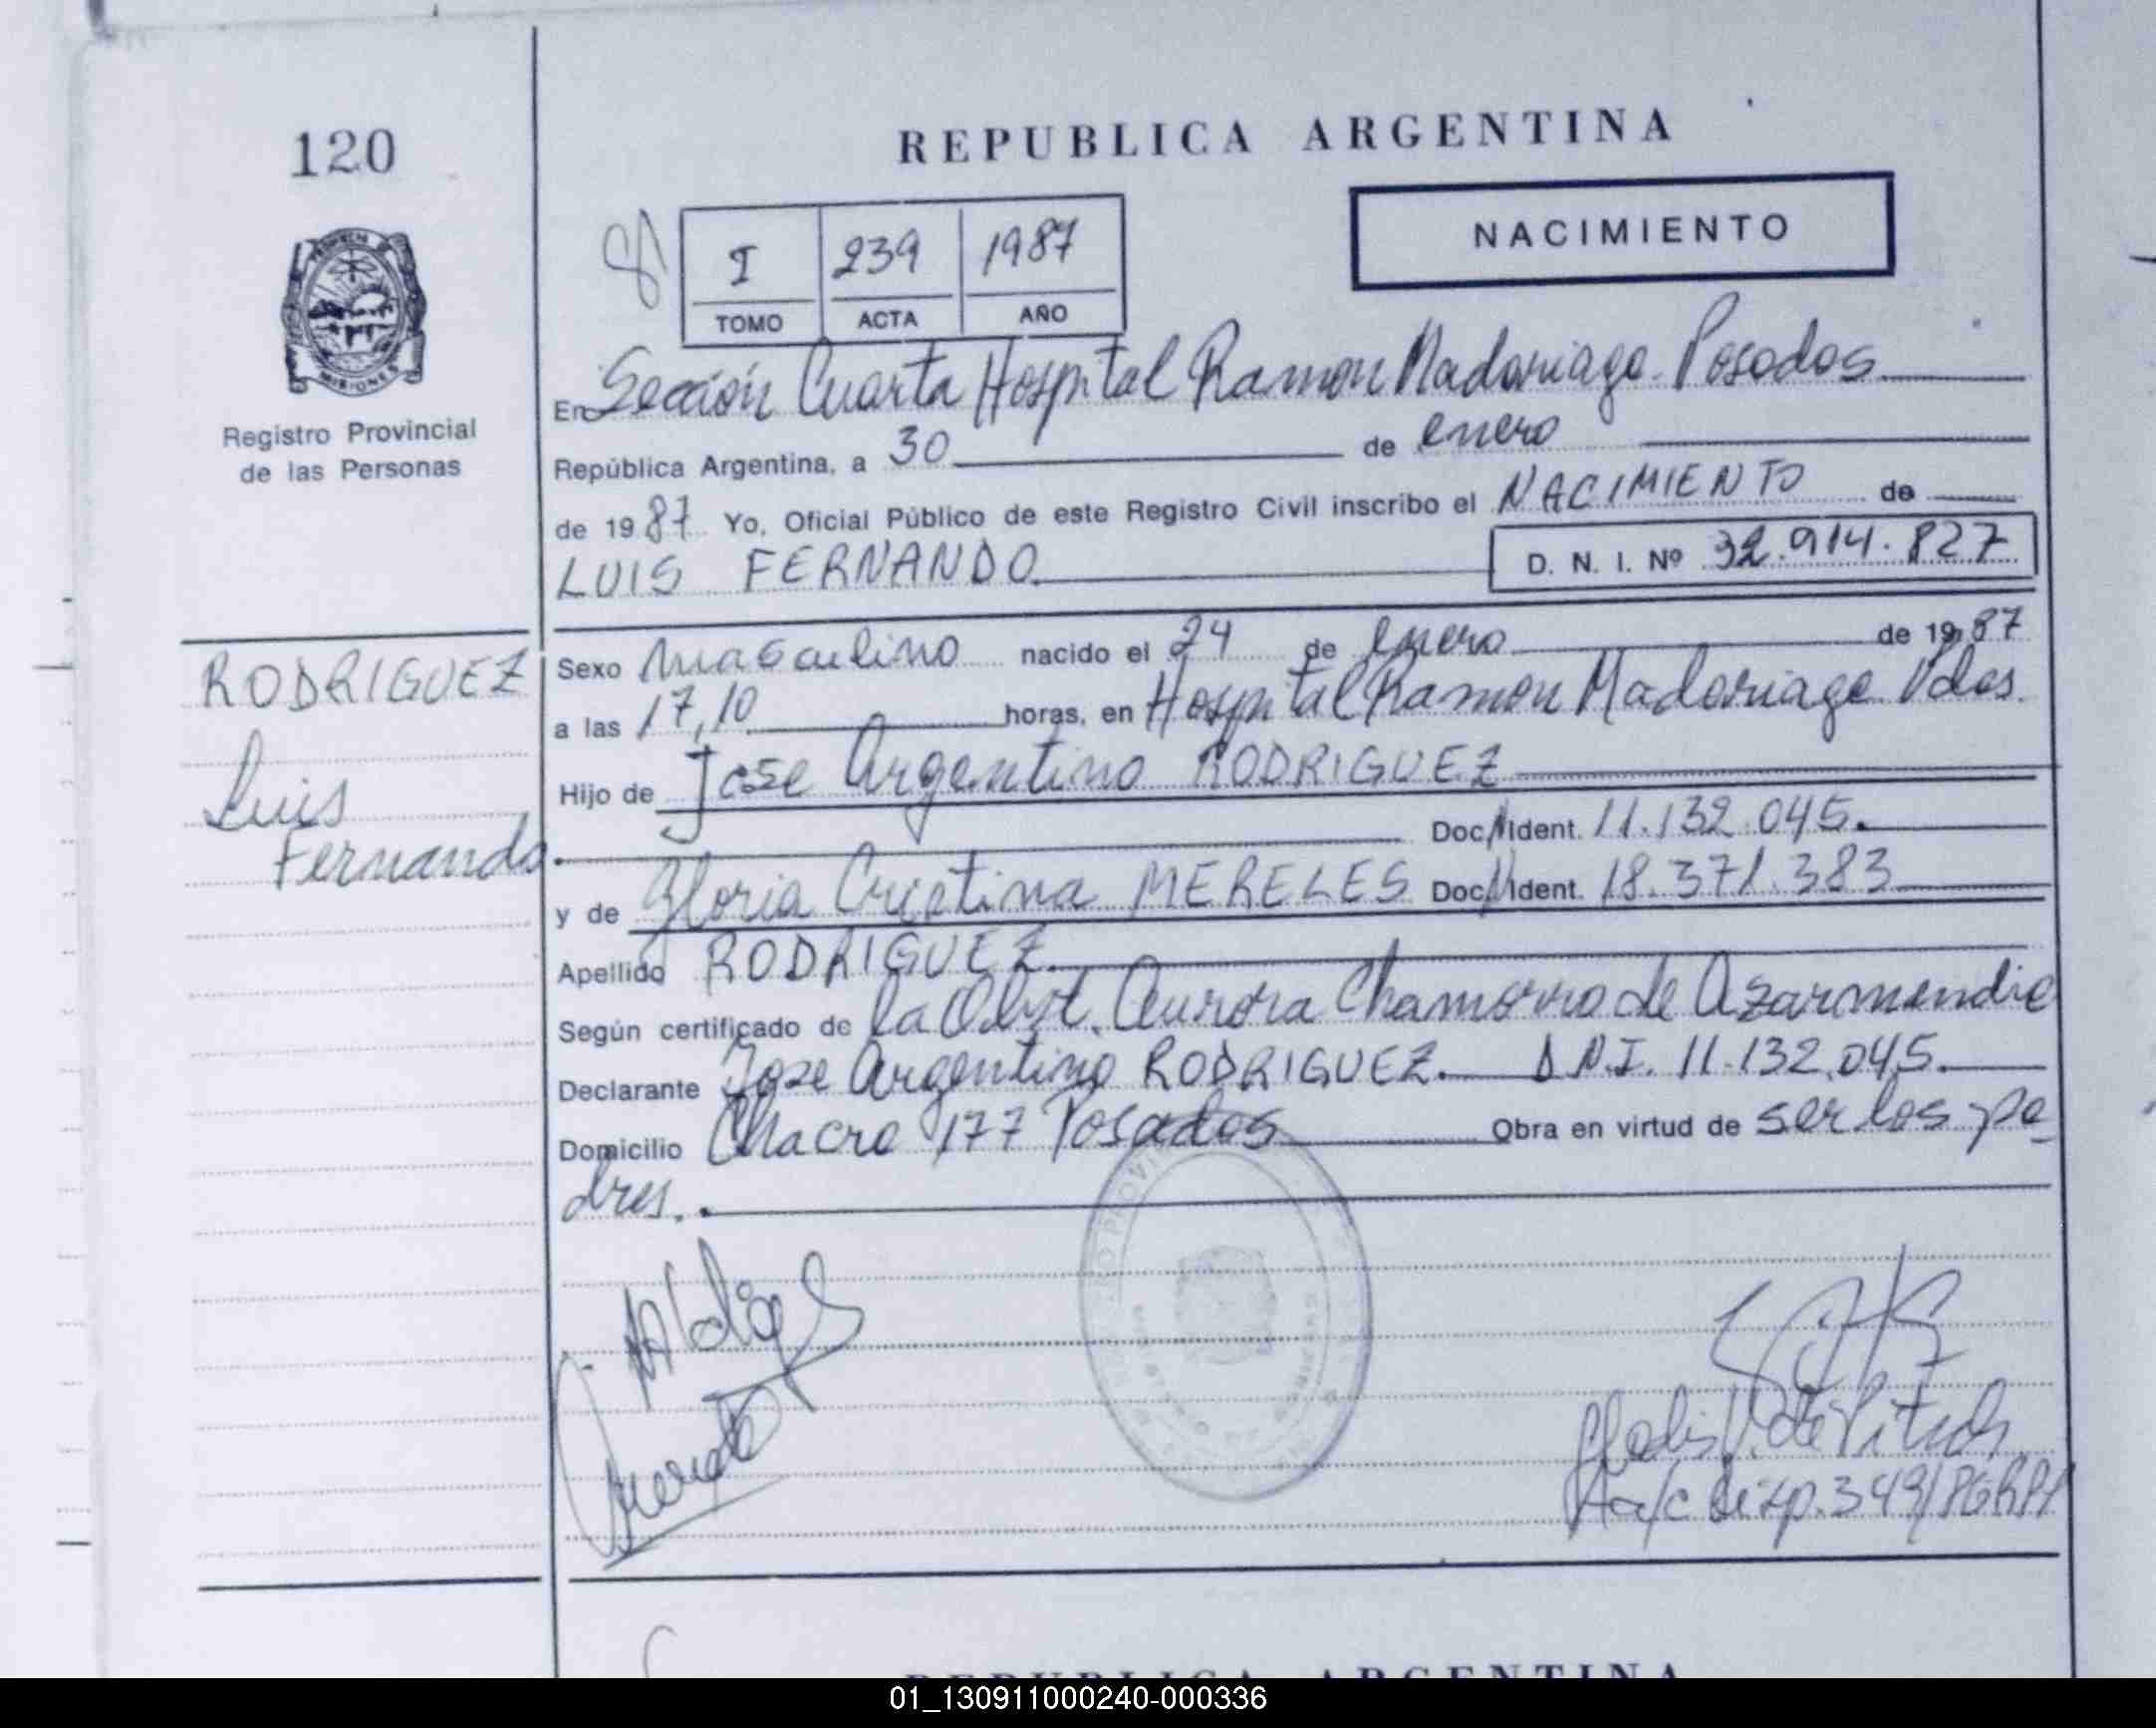 120
REPUBLICA ARGENTINA
NACIMIENTO
I 239 1987
TOMO ACTA AÑO
MISIONES
Registro Provincial
de las Personas
En Sección Cuarta Hospital Ramon Madariaga - Posadas
República Argentina, a 30 de enero
de 1987 Yo, Oficial Público de este Registro Civil inscribo el NACIMIENTO de
LUIS FERNANDO
D. N. I. Nº 32.914.827
RODRIGUEZ
Luis
Fernando
Sexo masculino nacido el 24 de enero de 1987
a las 17,10 horas, en Hospital Ramon Madariaga Pdas.
Hijo de Jose Argentino RODRIGUEZ
Doc. Ident. 11.132.045.
y de Gloria Cristina MERELES Doc. Ident. 18.371.383
Apellido RODRIGUEZ
Según certificado de la Obst. Aurora Chamorro de Azarmendia
Declarante Jose Argentino RODRIGUEZ. D.N.I. 11.132.045.
Domicilio Chacra 177 Posadas Obra en virtud de ser los pa-
dres.
REPUBLICA ARGENTINA
01_130911000240-000336